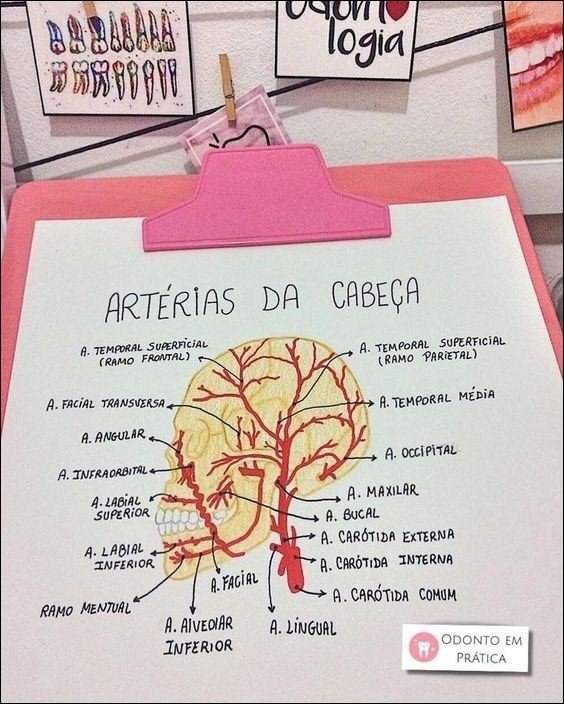 Odonto
logia
ARTÉRIAS DA CABEÇA
A. TEMPORAL SUPERFICIAL
(RAMO FRONTAL)
A. TEMPORAL SUPERFICIAL
(RAMO PARIETAL)
A. FACIAL TRANSVERSA
A. TEMPORAL MÉDIA
A. ANGULAR
A. OCCIPITAL
A. INFRAORBITAL
A. MAXILAR
A. LABIAL
SUPERIOR
A. BUCAL
A. CARÓTIDA EXTERNA
A. LABIAL
INFERIOR
A. CARÓTIDA INTERNA
A. FACIAL
A. CARÓTIDA COMUM
RAMO MENTUAL
A. ALVEOLAR
INFERIOR
A. LÍNGUAL
ODONTO EM
PRÁTICA